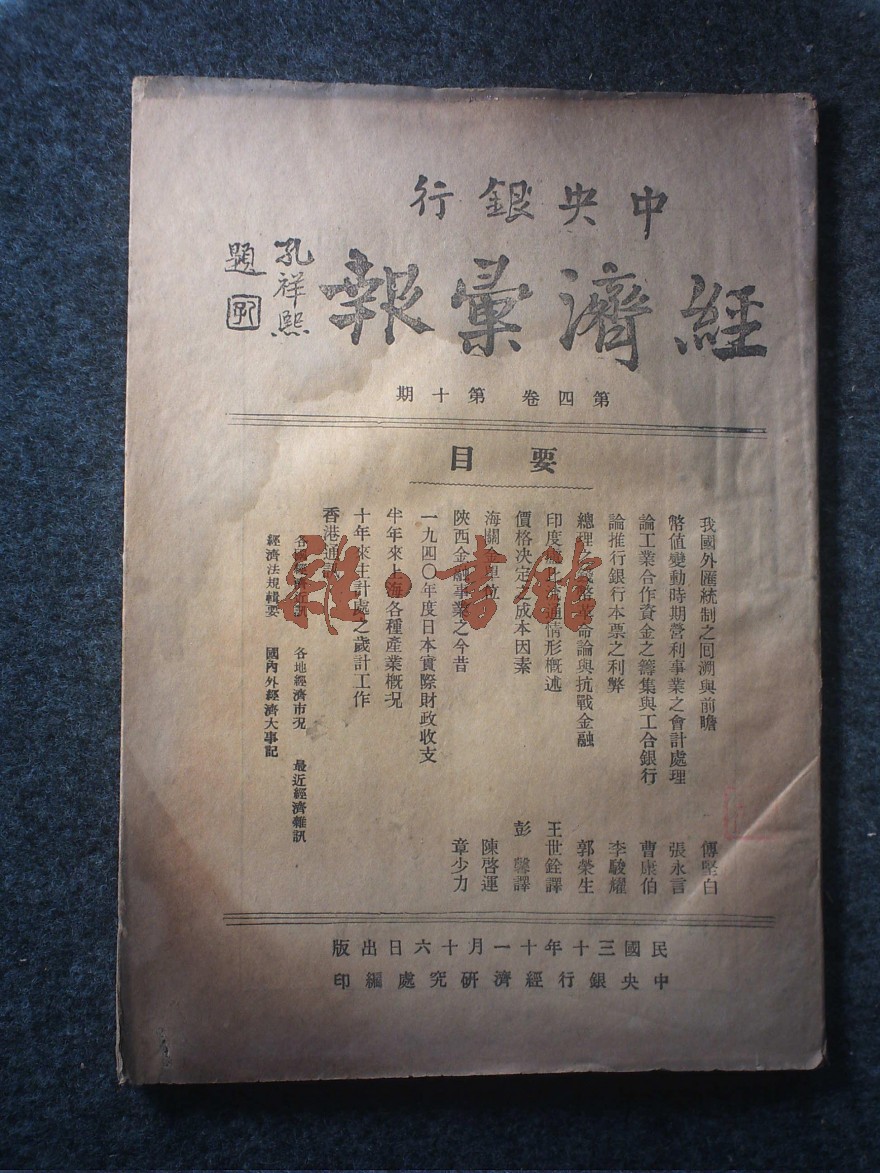 中央銀行
經濟彙報
孔祥熙
題
第四卷 第十期
要目
我國外匯統制之回溯與前瞻 傅堅白
幣值變動時期營利事業之會計處理 張永言
論工業合作資金之籌集與工合銀行 曹康伯
論推行銀行本票之利弊 李駿耀
總理之錢幣革命論與抗戰金融 郭榮生
印度 流通情形概述 王世銓譯
價格決定 成本因素 彭馨譯
海關金單位 陳啓運
陝西金融事業之今昔 章少力
一九四〇年度日本實際財政收支
半年來上海各種產業概况
十年來主計處之歲計工作
香港通訊
各國經濟近訊 各地經濟市况 最近經濟雜訊
經濟法規輯要 國內外經濟大事記
民國三十年十一月十六日出版
中央銀行經濟研究處編印
雜·書館